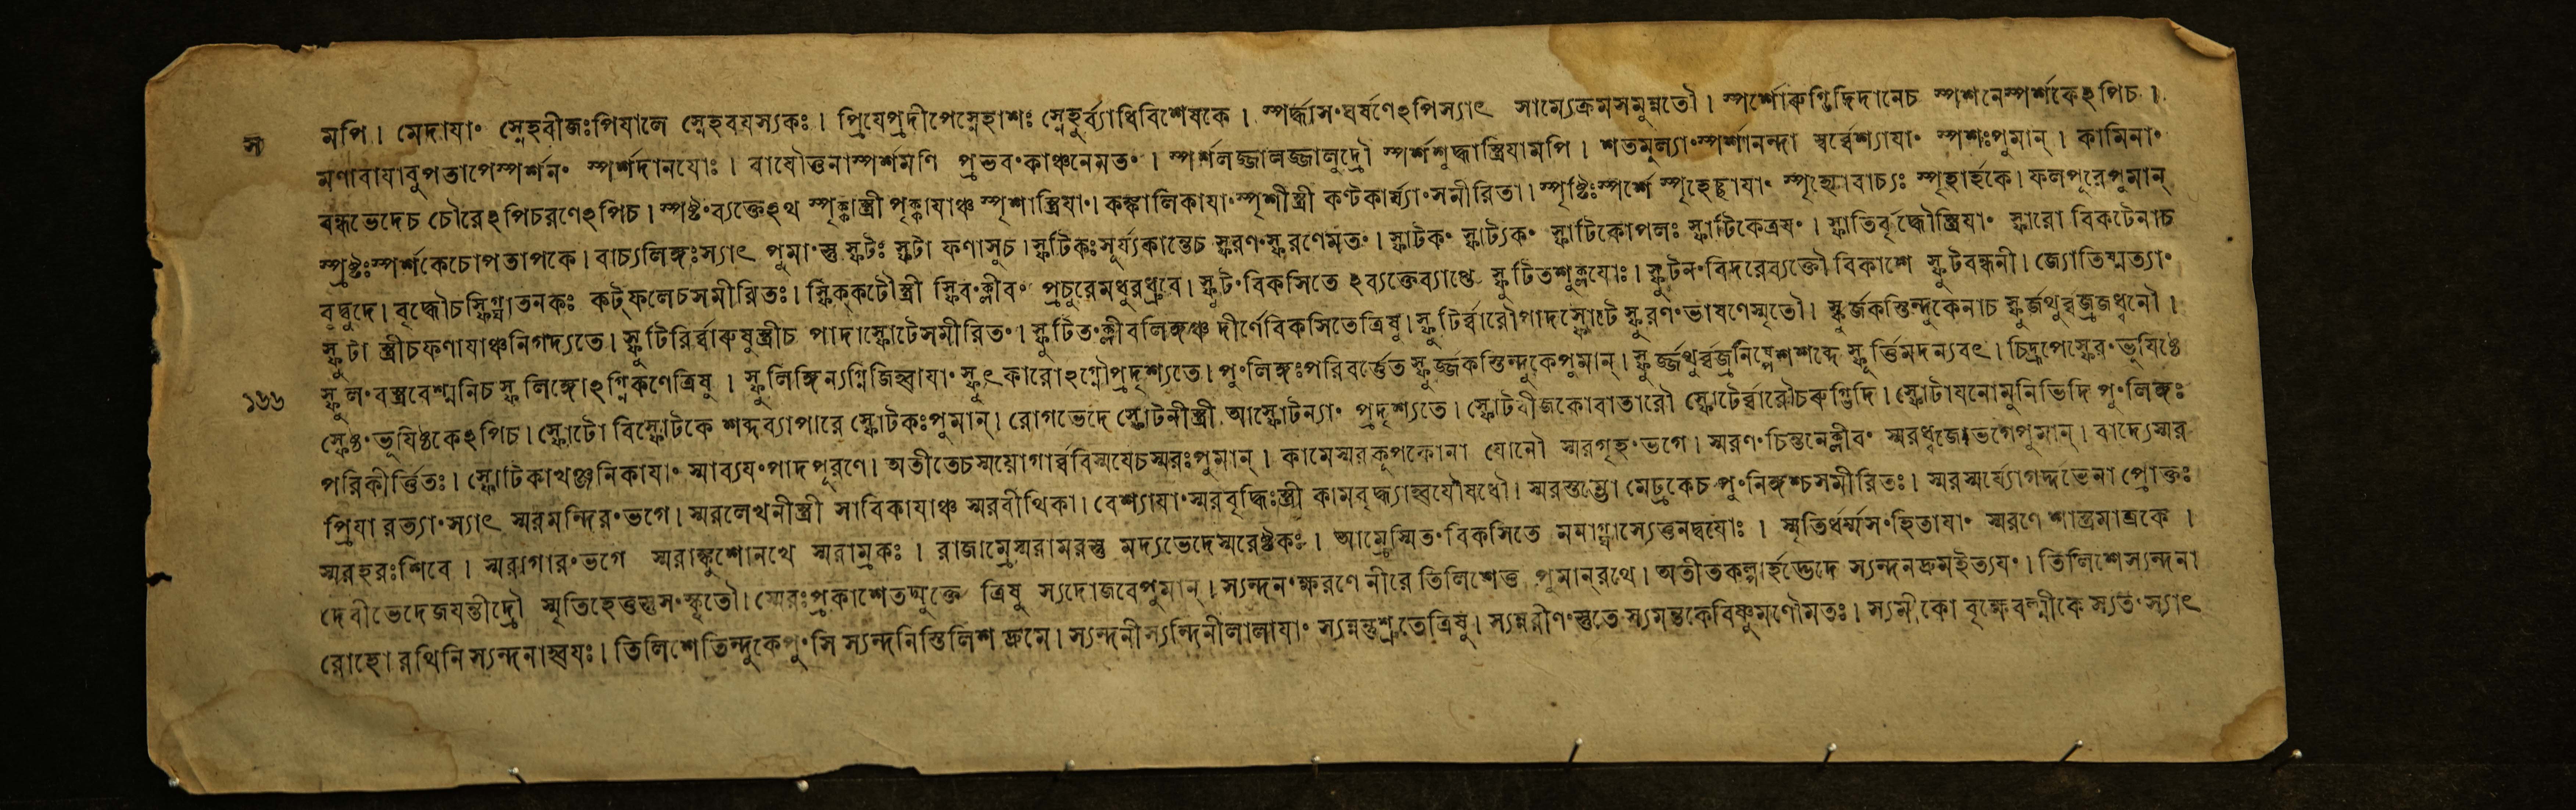 স মপি। মেদাযা॰ স্নেহবীজঃপিযালে স্নেহবযস্যকঃ। প্রিযেপ্রদীপেস্নেহাশঃ স্নেহুর্ব্যাধিবিশেষকে। স্পর্দ্ধাস॰ঘর্ষণেঽপিস্যাৎ সাম্যেক্রমসমুন্নতৌ। স্পর্শোৰুগ্ভিদিদানেচ স্পশনেস্পর্শকেঽপিচ।
মণাবাযাবুপতাপেস্পর্শন॰ স্পর্শদানযোঃ। বাযৌত্তনাস্পর্শমণি প্রভব॰কাঞ্চনেমত॰। স্পর্শলজ্জালজ্জালুদ্রৌ স্পর্শশুদ্ধাস্ত্রিযামপি। শতমুল্যা॰স্পর্শানন্দা স্বর্ব্বেশ্যাযা॰ স্পশঃপুমান্। কামিনা॰
বন্ধভেদেচ চৌরেঽপিচরণেঽপিচ। স্পষ্ট॰ব্যক্তেঽথ স্পৃক্কাস্ত্রী পৃক্কাযাঞ্চ স্পৃশাস্ত্রিযা॰। কঙ্কালিকাযা॰স্পৃশীস্ত্রী কণ্টকার্য্যা॰সমীরিতা। স্পৃষ্টিঃস্পর্শে স্পৃহেচ্ছাযা॰ স্পৃহ্যোবাচ্যঃ স্পৃহার্হকে। ফলপূরেপুমান্
স্প্রষ্টঃস্পর্শকেচোপতাপকে। বাচ্যলিঙ্গঃস্যাৎ পুমা॰স্তু স্ফটঃ স্ফটা ফণাসুচ। স্ফটিকঃসূর্য্যকান্তেচ স্ফরণ॰স্ফরণেমত॰। স্ফাটক॰ স্ফাট্যক॰ স্ফাটিকোপলঃ স্ফাটিকেত্রয॰। স্ফাতিবৃদ্ধৌস্ত্রিযা॰ স্ফারো বিকটেনাচ
বুদ্বুদে। বৃদ্ধৌচস্ফিগ্ঘাতনকঃ কট্ফলেচসমীরিতঃ। স্ফিক্কটৌস্ত্রী স্ফির॰ক্লীব॰ প্রচুরেমধুরধ্রুবে। স্ফুট॰বিকসিতে ঽব্যক্তেব্যাপ্তে স্ফুটিতশুক্লযোঃ। স্ফুটন॰বিদরেব্যক্তৌ বিকাশে স্ফুটবন্ধনী। জ্যোতিষ্মত্যা॰
স্ফুটা স্ত্রীচফণাযাঞ্চনিগদ্যতে। স্ফুটিরির্ব্বাৰুষুস্ত্রীচ পাদাস্ফোটেসমীরিত॰। স্ফুটিত॰ক্লীবলিঙ্গঞ্চ দীর্ণেবিকসিতেত্রিষু। স্ফুটির্ব্বারৌপাদস্ফোটে স্ফুরণ॰ভাষণেস্মৃতৌ। স্ফুর্জকস্তিন্দুকেনাচ স্ফুর্জথুর্ব্বজ্রজধ্বনৌ।
১৬৬ স্ফুল॰বস্ত্রবেশ্মনিচ স্ফুলিঙ্গোঽগ্নিকণেত্রিষু। স্ফুলিঙ্গিন্যগ্নিজিহ্বাযা॰ স্ফুৎকারোঽগ্নৌপ্রদৃশ্যতে। পু॰লিঙ্গঃপরিবর্ত্তেত স্ফুর্জ্জকস্তিন্দুকেপুমান্। স্ফুর্জ্জথুর্ব্বজ্রনিষ্পেশশব্দে স্ফূর্ত্তিমদন্যবৎ। চিদ্রূপেস্ফের॰ভূযিষ্ঠে
স্ফেষ্ঠ॰ভূযিষ্ঠকেঽপিচ। স্ফোটো বিস্ফোটকে শব্দব্যাপারে স্ফোটকঃপুমান্। রোগভেদে স্ফোটনীস্ত্রী আস্ফোটন্যা॰ প্রদৃশ্যতে। স্ফোটবীজকোবাতারৌ স্ফোটের্ব্বারৌচৰুগ্ভিদি। স্ফোটাযনোমুনিভিদি পু॰লিঙ্গঃ
পরিকীর্ত্তিতঃ। স্ফোটিকাখঞ্জনিকাযা॰ স্মাব্যয॰পাদপূরণে। অতীতেচস্ময়োগার্ব্ববিস্ময়েচস্মরঃপুমান্। কামেস্মরকূপকোনা যোনৌ স্মরগৃহ॰ভগে। স্মরণ॰চিন্তনেক্লীব॰ স্মরধ্বজোভগেপুমান্। বাদ্যেস্মর
প্রিযা রত্যা॰স্যাৎ স্মরমন্দির॰ভগে। স্মরলেখনীস্ত্রী সারিকাযাঞ্চ স্মরবীথিকা। বেশ্যাযা॰স্মরবৃদ্ধিঃস্ত্রী কামবৃদ্ধ্যাহ্বযৌষধৌ। স্মরস্তম্ভো মেঢ্রকেচ পু॰লিঙ্গশ্চসমীরিতঃ। স্মরস্মর্য্যোগর্দ্দভেনা প্রোক্তঃ
স্মরহরঃশিবে। স্মরাগার॰ভগে স্মরাঙ্কুশোনখে স্মরাম্রকঃ। রাজাম্রেস্মরামরস্তু মদ্যভেদেস্মরেষ্টকঃ। আম্রেস্মিত॰বিকসিতে মনাগ্ঘাস্যেত্তনদ্বযোঃ। স্মৃতির্ধর্ম্মস॰হিতাযা॰ স্মরণে শাস্ত্রমাত্রকে।
দেবীভেদেজযন্তীদ্রৌ স্মৃতিহেত্তুস্তুস॰স্কৃতৌ। স্মেরঃপ্রকাশেতদ্যুক্তে ত্রিষু স্যদোজবেপুমান্। স্যন্দন॰ক্ষরণে নীরে তিলিশেত্তু পুমান্রথে। অতীতকল্পার্হদ্ভেদে স্যন্দনদ্রুমইত্যয॰। তিলিশেস্যন্দনা
রোহো রথিনি স্যন্দনাহ্বযঃ। তিলিশেতিন্দুকেপু॰সি স্যন্দনিস্তিলিশ দ্রুমে। স্যন্দনীস্যন্দিনীলালাযা॰ স্যন্নন্তুশ্রুতেত্রিষু। স্যন্নরীণ॰স্তুতে স্যমন্তকেবিষ্ণুমণৌমতঃ। স্যমীকো বৃক্ষেবল্মীকে স্যূত॰স্যাৎ